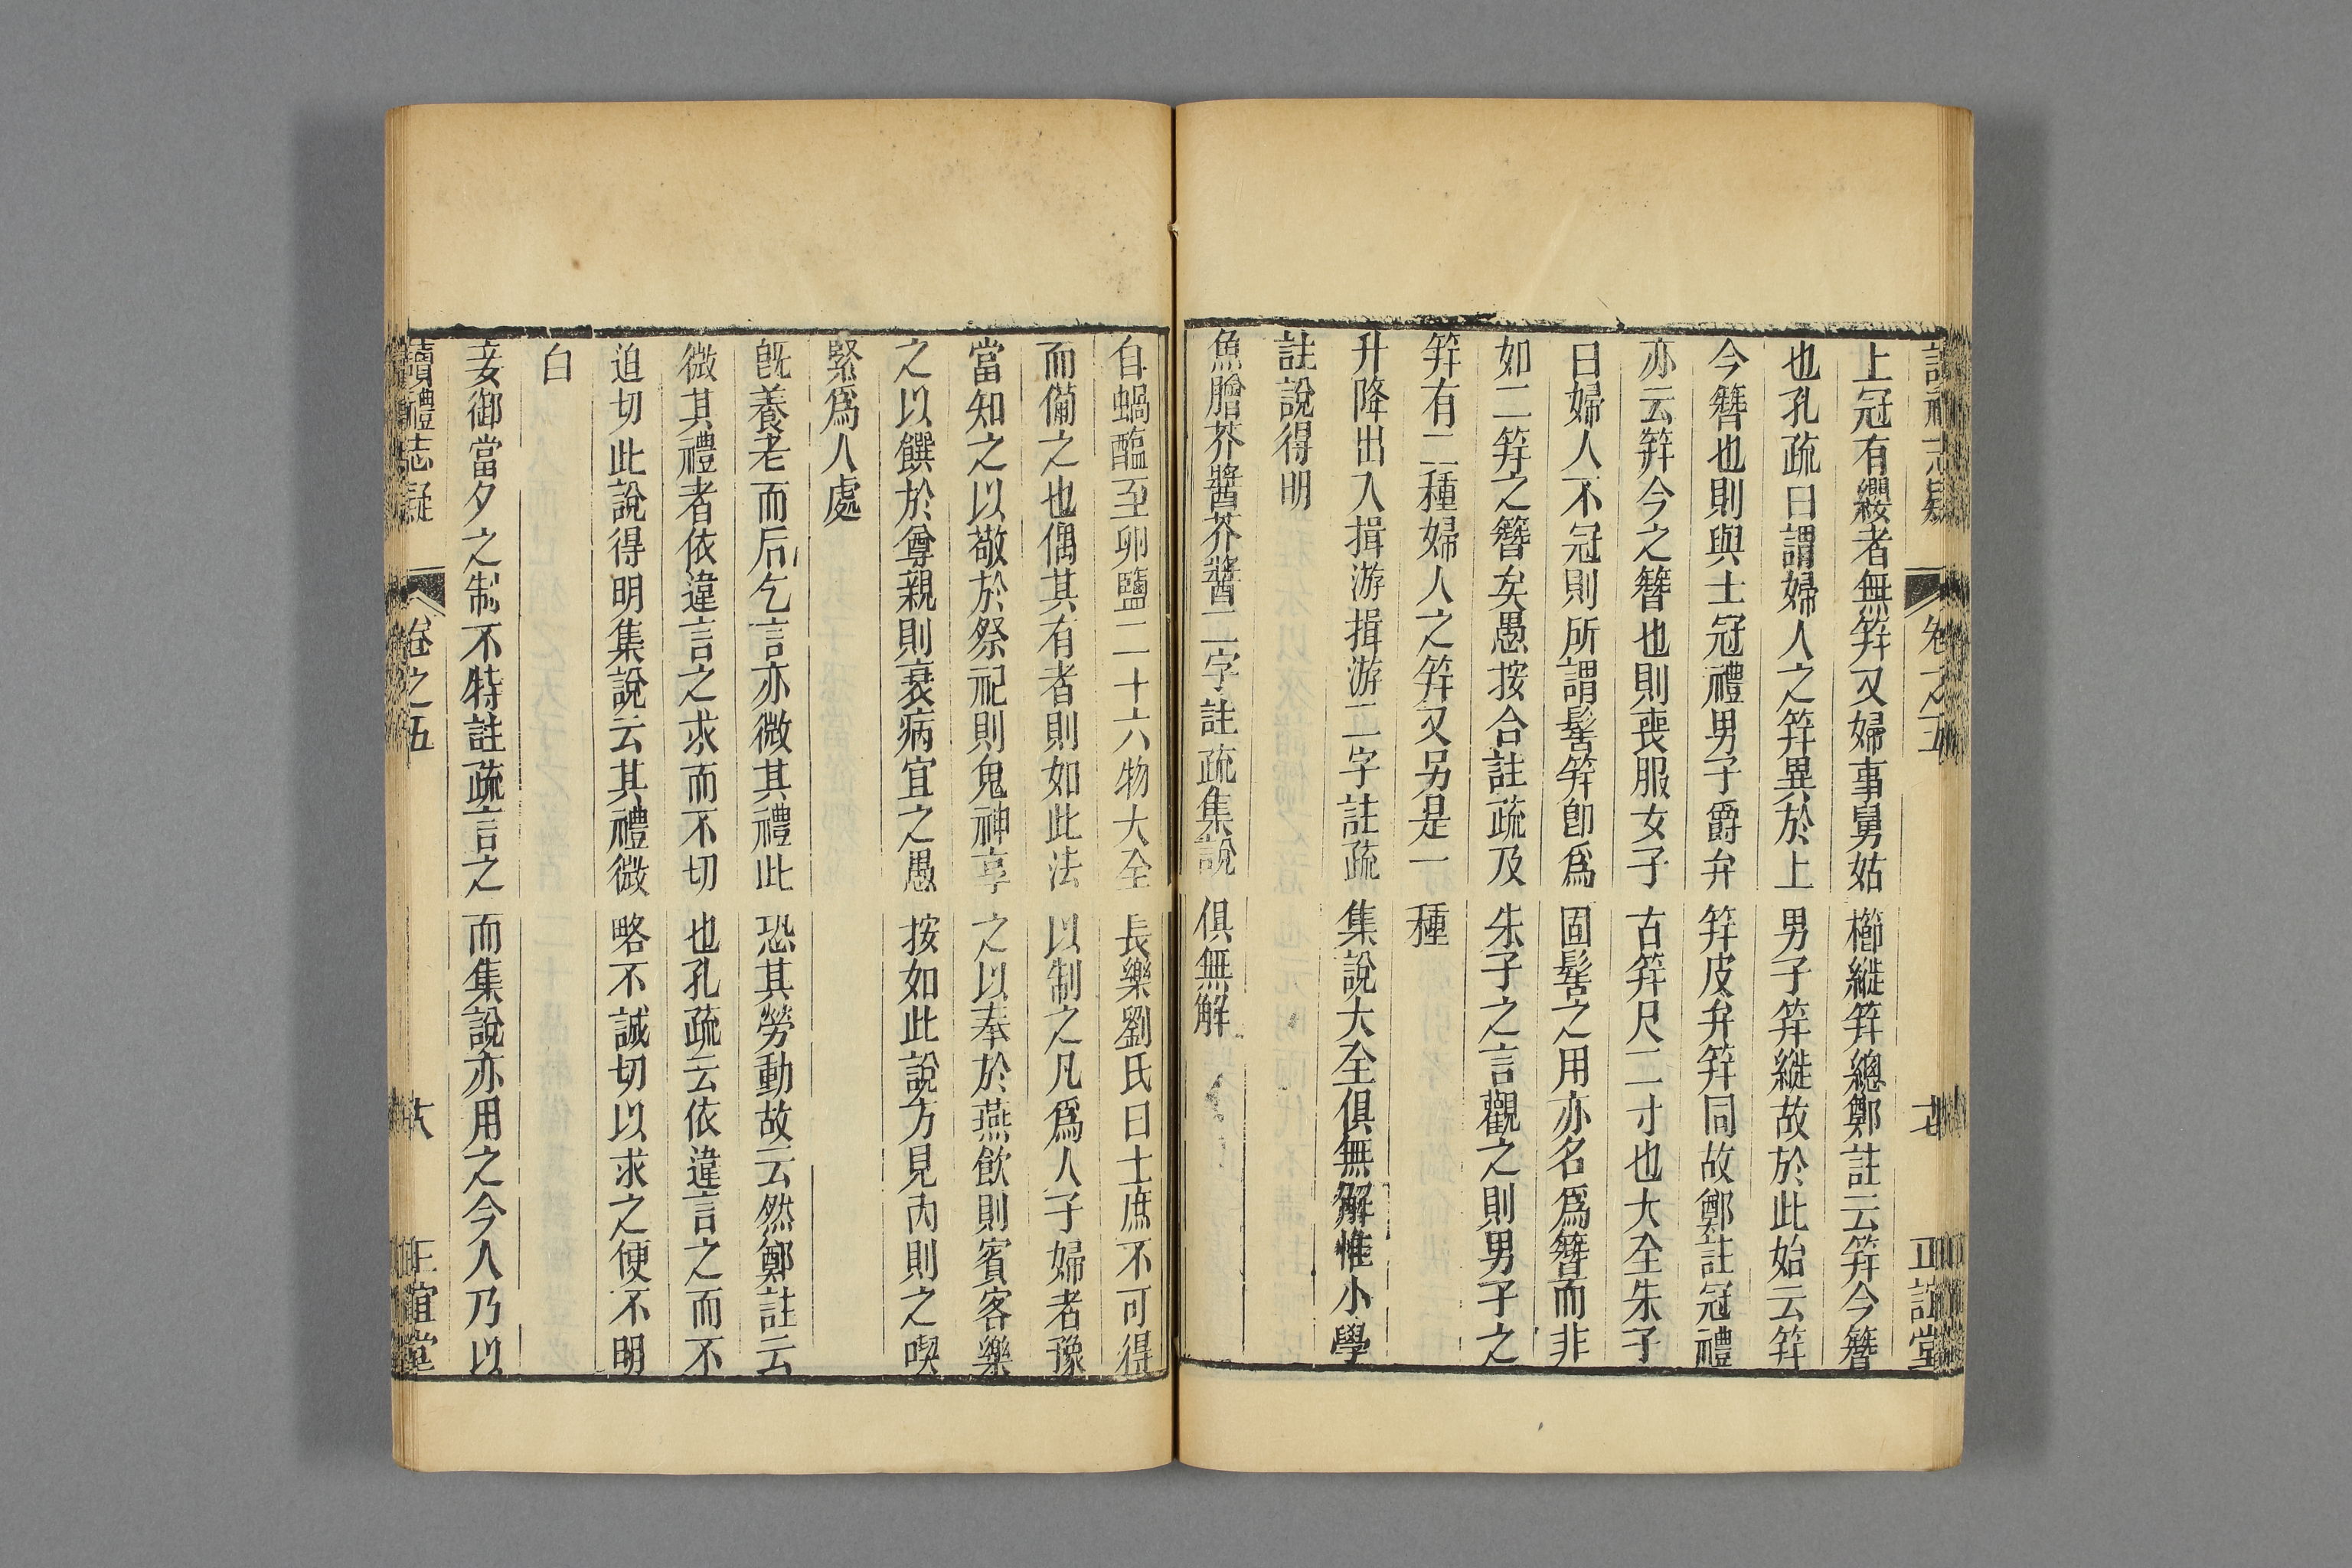 讀禮志疑 卷之五 七 正誼堂
上冠有纓者無笄又婦事舅姑櫛縰笄總鄭註云笄今簪
也孔疏曰謂婦人之笄異於上男子笄縰故於此始云笄
今簪也則與士冠禮男子爵弁笄皮弁笄同故鄭註冠禮
亦云笄今之簪也則喪服女子古笄尺二寸也大全朱子
曰婦人不冠則所謂髺笄即爲固髺之用亦名爲簪而非
如二笄之簪矣愚按合註疏及朱子之言觀之則男子之
笄有二種婦人之笄又另是一種
升降出入揖游揖游二字註疏集說大全俱無解惟小學
註說得明
魚膾芥醬芥醬二字註疏集說俱無解
自蝸醢至卵鹽二十六物大全長樂劉氏曰士庶不可得
而備之也偶其有者則如此法以制之凡爲人子婦者豫
當知之以敬於祭祀則鬼神享之以奉於燕飲則賓客樂
之以饌於尊親則衰病宜之愚按如此說方見內則之喫
緊爲人處
旣養老而后乞言亦微其禮此恐其勞動故云然鄭註云
微其禮者依違言之求而不切也孔疏云依違言之而不
迫切此說得明集說云其禮微略不誠切以求之便不明
白
妾御當夕之制不特註疏言之而集說亦用之今人乃以
讀禮志疑 卷之五 六 正誼堂